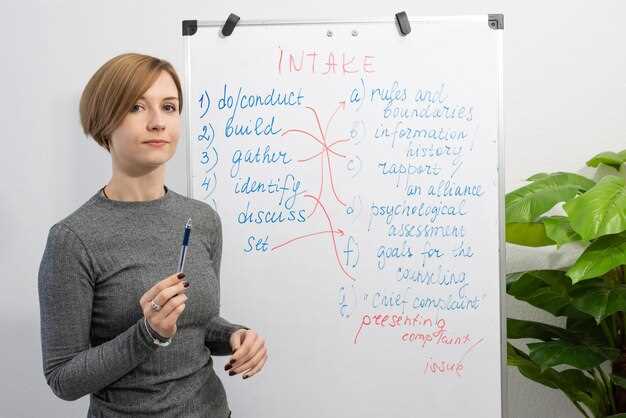 INTAKE
1) do/conduct
2) build
3) gather
4) identify
discuss
set
a) rules and
boundaries
b) information /
history
c) rapport /
an alliance
d) psychological
assessment
f) goals for the
counseling
g) "chief complaint"
presenting
complaint
issue